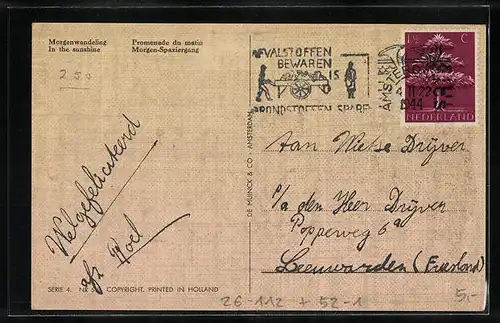 Morgenwandeling
In the sunshine
Promenade du matin
Morgen-Spaziergang
250
AFVALSTOFFEN
BEWAREN
IS
GRONDSTOFFEN SPAREN
AMSTERDAM
4 II 22
1944
1½ C
NEDERLAND
Welgefeliciteerd
afz. Roel
DE MUINCK & CO - AMSTERDAM
Aan Wietse Drijver
p/a den Heer Drijver
Popperweg 6
Leeuwarden (Friesland)
SERIE 4. NR COPYRIGHT. PRINTED IN HOLLAND
26-112 + 52-1
5,-